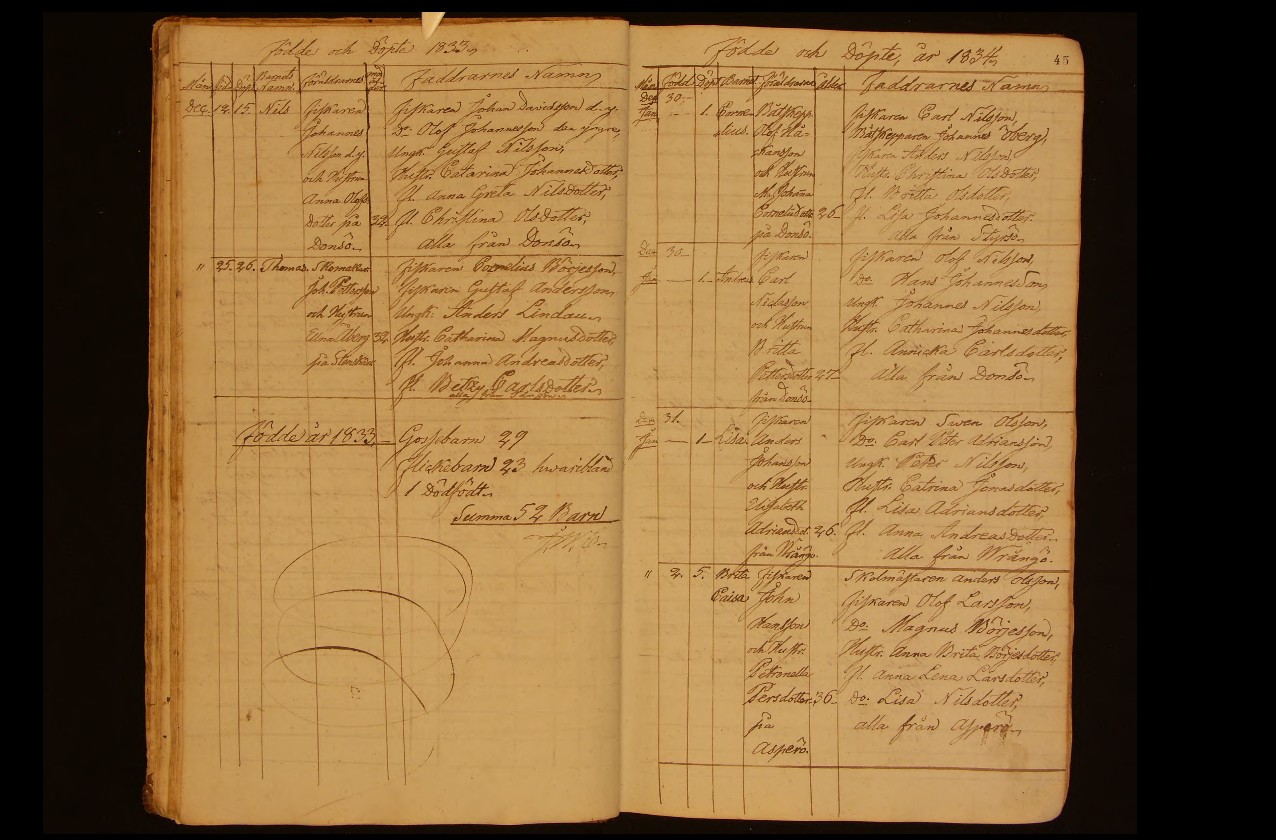 Födde och Döpte 1833
Mån Föd. Döpt Barnets Namn Föräldrarnes Faddrarnes Namn
Dec. 14. 15. Nils Fiskaren Fiskaren Johan Davidsson d.y.
Johannes Do Olof Johannesson den yngre,
Nilsson d.y. Ungk. Gustaf Nilsson,
och Hustrun Hustr. Catarina Johannesdotter,
Anna Olofs fl. Anna Greta Nilsdotter,
Dotter på 32. fl. Christina Olsdotter,
Donsö. alla från Donsö
" 25. 26. Thomas. Skomakar Fiskaren Cornelius Börjesson,
Joh. Pettersson Fiskaren Gustaf Andersson,
och Hustrun Ungk. Anders Lindau
Åberg 32. Hustr. Catharina Magnusdotter,
på fl. Johanna Andreasdotter,
fl. Betzy Carlsdotter
alla från
Födde år 1833 Gossebarn 29
Flickebarn 23 hvaribland
1 Dödfödt
Summa 52 Barn
Födde och Döpte, år 1834 45
Mån Födde Döpt Barnet Föräldrarne Ålder Faddrarnes Namn
Dec 30.
Jan 1. Corne- Båtskepp Fiskaren Carl Nilsson,
lius. Olof Hå- Båtskepparen Johannes Öberg,
kansson Fiskaren Anders Nilsson,
och Hustrun Hustr. Christina Olsdotter,
Johanna fl. Britta Olsdotter,
Cornelidotter 26. fl. Lisa Johannesdotter.
på Donsö. alla från Styrsö
Dec 30. Fiskaren Fiskaren Olof Nilsson,
Jan 1. Andreas Carl Do Hans Johannesson,
Niclasson Ungk. Johannes Nilsson,
och Hustrun Hustr. Catharina Johannesdotter,
Britta fl. Annicka Carlsdotter,
Pettersdotter 27. Alla från Donsö
från Donsö.
Dec 31. Fiskaren Fiskaren Swen Olsson,
Jan 1. Lisa. Anders Do. Carl Peter Adriansson,
Johansson Ungk. Peter Nilsson,
och Hustr. Hustr. Catrina Jonasdotter,
Elisabeth fl. Lisa Adriansdotter,
Adriansdot. 26. fl. Anna Andreasdotter
från Wrångö. Alla från Wrångö.
" 2. 5. Brita Fiskaren Skolmästaren Anders Olsson,
Caisa John Fiskaren Olof Larsson,
Hansson Do. Magnus Börjesson,
och Hustr. Hustr. Anna Brita Börjesdotter,
Petronella fl. Anna Lena Larsdotter,
Persdotter 36. Do. Lisa Nilsdotter,
på alla från Asperö
Asperö.